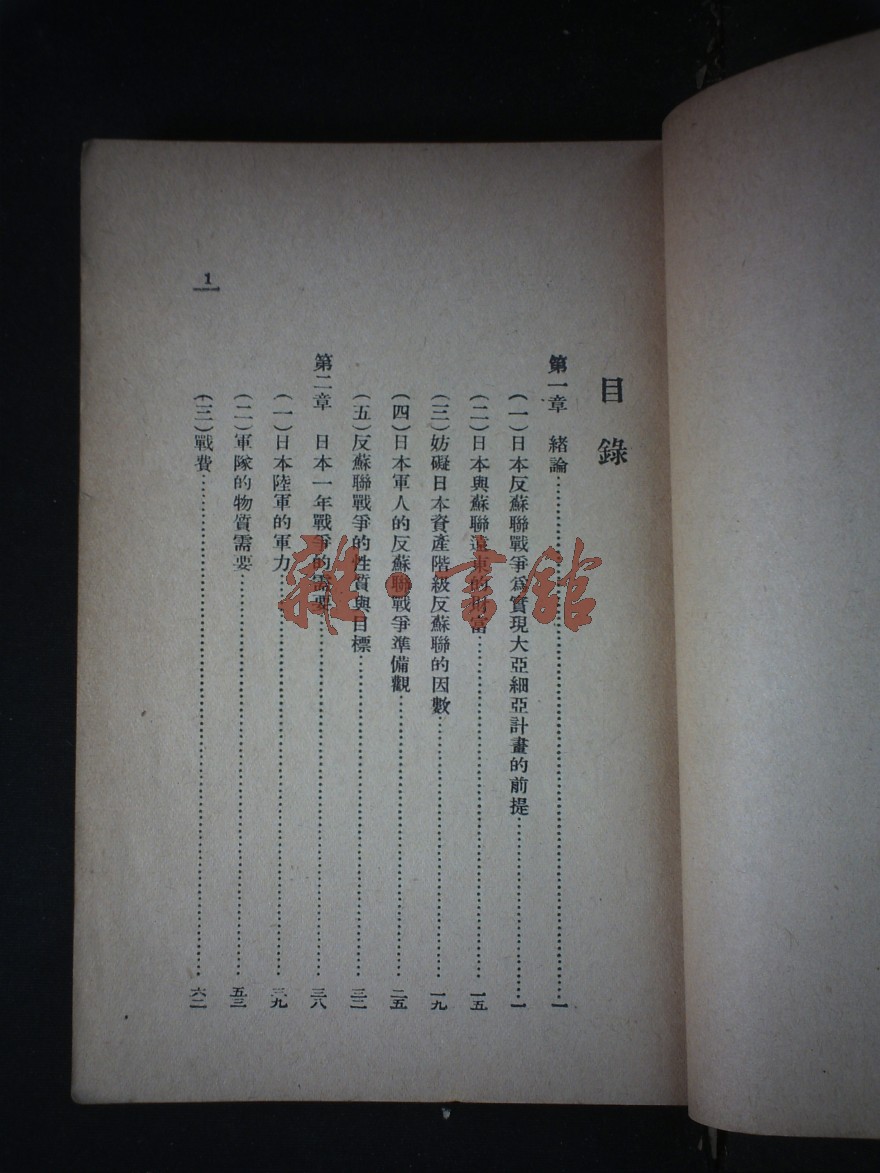 目錄
第一章　緒論……一
（一）日本反蘇聯戰爭爲實現大亞細亞計畫的前提……一
（二）日本與蘇聯遠東的財富……一五
（三）妨礙日本資產階級反蘇聯的因數……一九
（四）日本軍人的反蘇聯戰爭準備觀……二五
（五）反蘇聯戰爭的性質與目標……三二
第二章　日本一年戰爭的需要……三八
（一）日本陸軍的軍力……三九
（二）軍隊的物質需要……五三
（三）戰費……六二
1
雜·書館